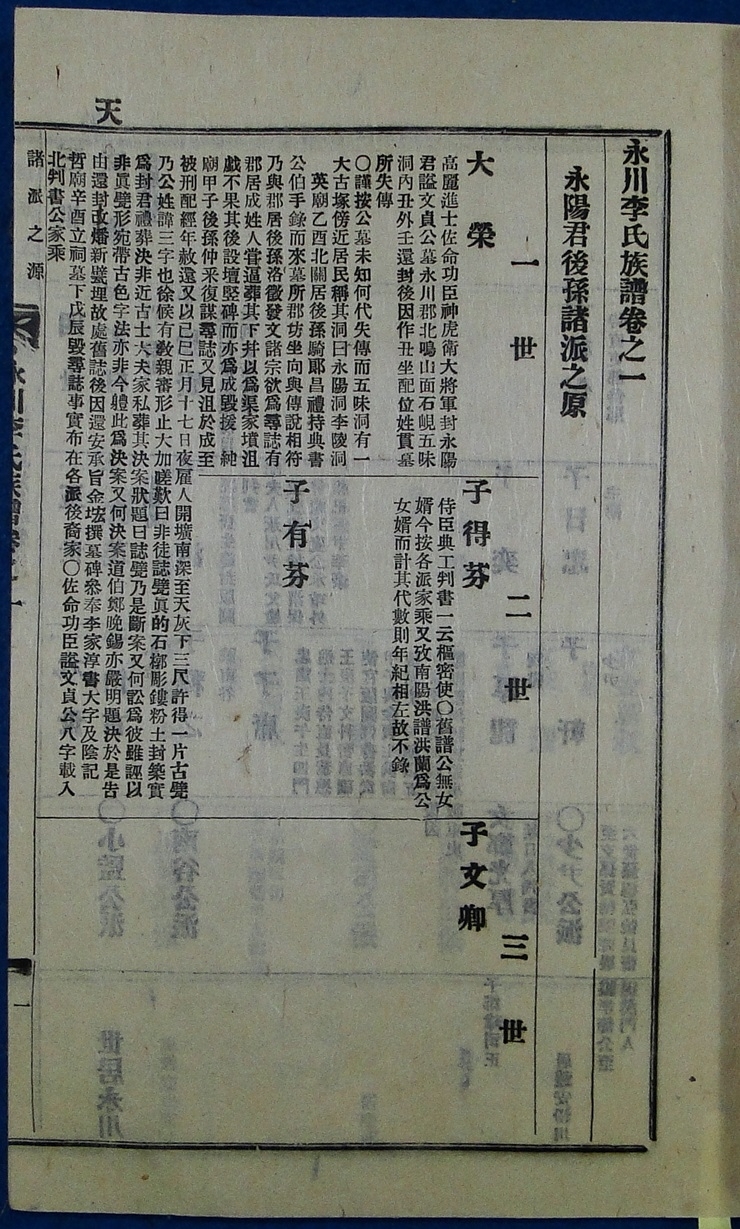 天
永川李氏族譜卷之一
永陽君後孫諸派之原
一世
二世
三世
大榮
高麗進士佐命功臣神虎衛大將軍封永陽
君諡文貞公墓永川郡北鳴山面石峴五味
洞內丑外壬還封後因作丑坐配位姓貫墓
所失傳
〇謹按公墓未知何代失傳而五味洞有一
大古塚傍近居民稱其洞曰永陽洞李陵洞
英廟乙酉北關居後孫騎郞昌禮持典書
公伯手錄而來墓所郡坊坐向與傳說相符
乃與郡居後孫洛徵發文諸宗欲爲尋誌有
郡居成姓人嘗逼葬其下幷以爲渠家墳沮
戱不果其後設壇竪碑而亦爲成毁援 純
廟甲子後孫仲釆復謀尋誌又見沮於成至
被刑配經年赦還又以己巳正月十七日夜雇人開壙南深至天灰下三尺許得一片古甓
乃公姓諱三字也徐候有敎親審形止大加嗟歎曰非徒誌甓眞的石槨彫鏤粉土封築實
爲封君禮葬決非近古士大夫家私葬其決案狀題曰誌甓乃是斷案又何訟爲彼雖誣以
非眞甓形宛帶古色字法亦非今體此爲決案又何決案道伯鄭晩錫亦嚴明題決於是告
由還封改燔新甓埋故處舊誌後因還安承旨金㙆撰墓碑參奉李家淳書大字及陰記
哲廟辛酉立祠墓下戊辰毁尋誌事實布在各派後裔家〇佐命功臣諡文貞公八字載入
北判書公家乘
子得芬
侍臣典工判書一云樞密使〇舊譜公無女
婿今按各派家乘又攷南陽洪譜洪蘭爲公
女婿而計其代數則年紀相左故不錄
子有芬
子文卿
諸派之源
永川李氏族譜卷之一
一